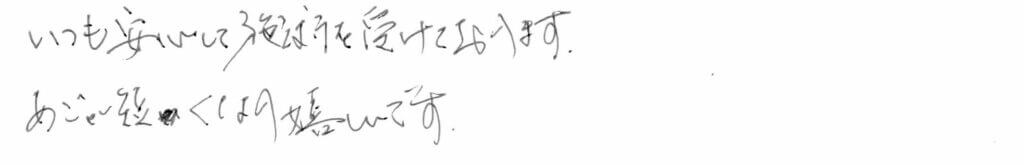 いつも安心して施術を受けております.
あごが短くなり嬉しいです.